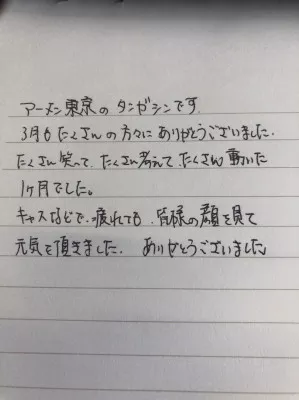 アーメン東京のタンガシンです.
3月もたくさんの方々にありがとうございました.
たくさん笑って、たくさん考えて、たくさん動いた
1ヶ月でした。
キャスなどで、疲れても、皆様の顔を見て
元気を頂きました. ありがとうございました